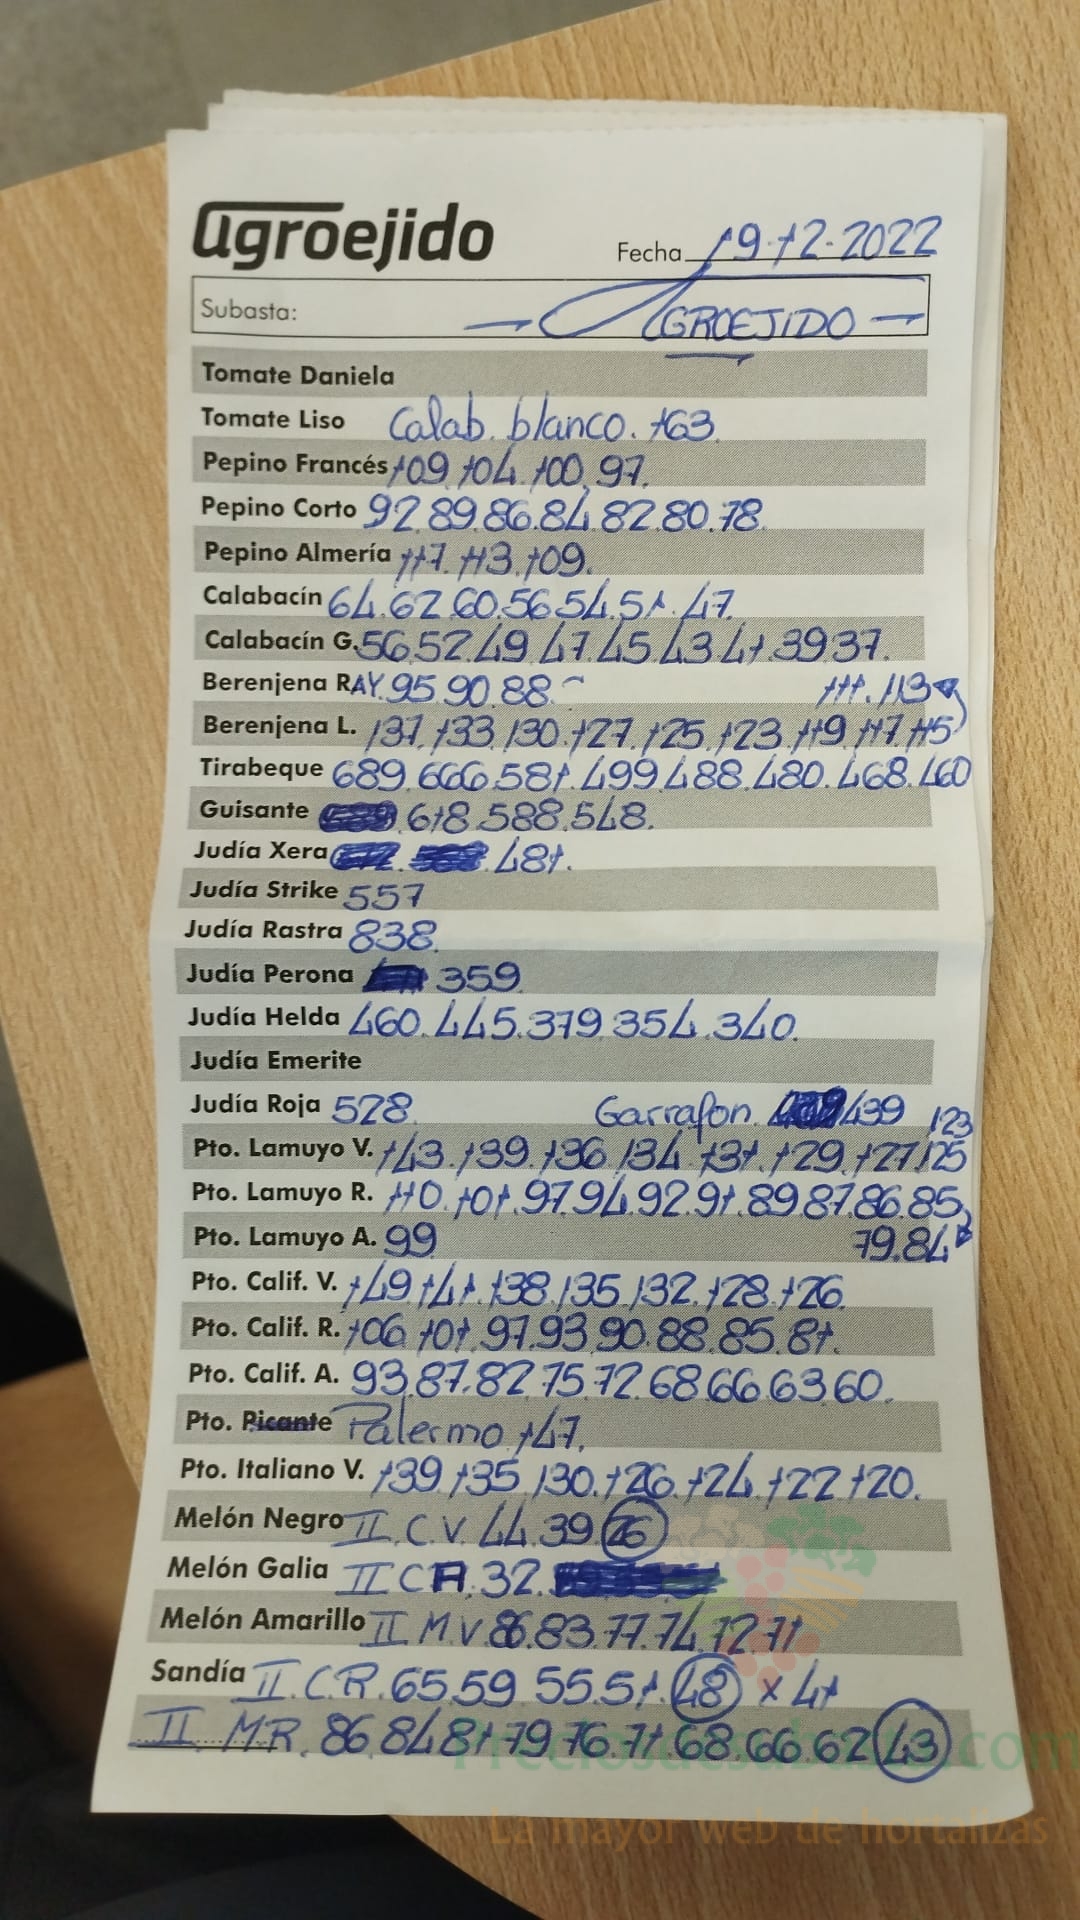 agroejido
Fecha 19-12-2022
Subasta: → AGROEJIDO —
Tomate Daniela
Tomate Liso Calab. blanco. 163
Pepino Francés 109.104.100.97.
Pepino Corto 92.89.86.84.82.80.78.
Pepino Almería 117.113.109.
Calabacín 64.62.60.56.54.51.47.
Calabacín G. 56.52.49.47.45.43.41.39.37.
Berenjena RAY. 95.90.88. 111.113
Berenjena L. 137.133.130.127.125.123.119.117.115
Tirabeque 689.666.581.499.488.480.468.460
Guisante 618.588.548.
Judía Xera 481.
Judía Strike 557
Judía Rastra 838.
Judía Perona 359
Judía Helda 460.445.379.354.340.
Judía Emerite
Judía Roja 528. Garrafon. 439 123
Pto. Lamuyo V. 143.139.136.134.131.129.127.125
Pto. Lamuyo R. 110.101.97.94.92.91.89.87.86.85
Pto. Lamuyo A. 99 79.84
Pto. Calif. V. 149.141.138.135.132.128.126.
Pto. Calif. R. 106.101.97.93.90.88.85.81.
Pto. Calif. A. 93.87.82.75.72.68.66.63.60.
Pto. Picante Palermo 147.
Pto. Italiano V. 139.135.130.126.124.122.120.
Melón Negro II.C.V. 44.39.26
Melón Galia II CA. 32.
Melón Amarillo II M.V. 86.83.77.74.72.71
Sandía II.C.R. 65.59.55.51.48 x 41
II MR. 86.84.81.79.76.71.68.66.62.43
Preciosdesubasta.com
La mayor web de hortalizas